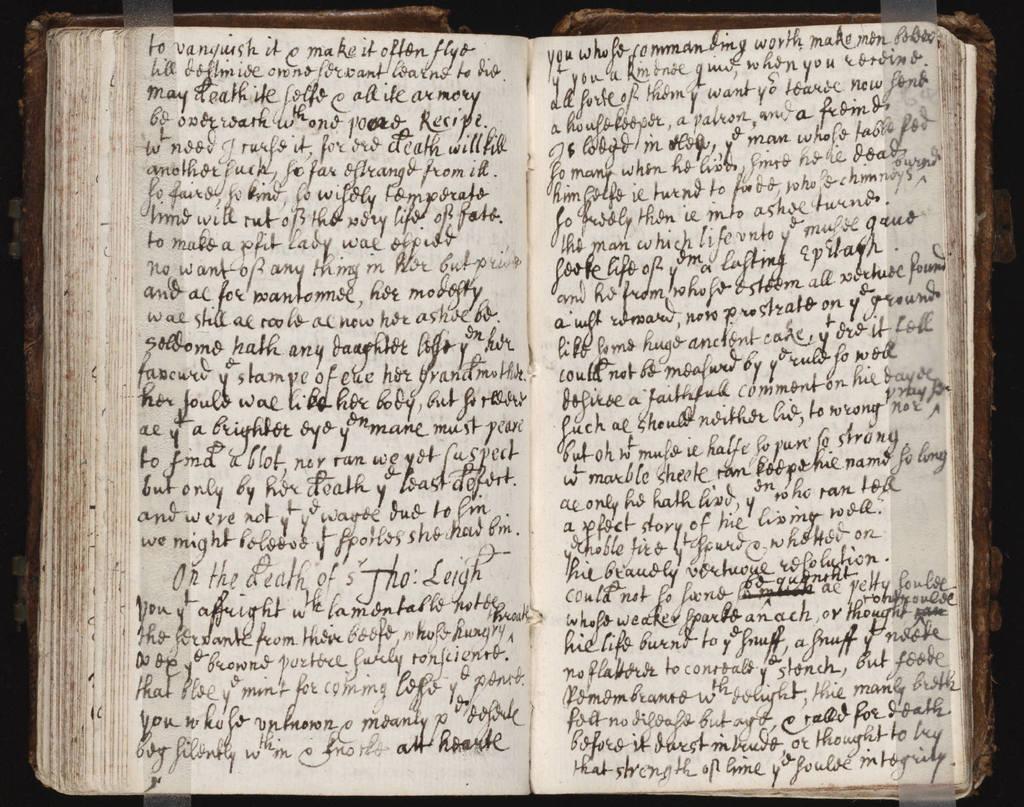 to vanquish it & make it often flye
till destinies owne servant learne to die.
may death its selfe & all its armory
be overreach wth one poore Recipe.
wt need I curse it, for ere death will kill
another such, so far estrang'd from ill.
so faire, so kind, so wisely temperate
time will cut off the very life of fate.
to make a pfit lady was espied
no want of any thing in her but pride
and as for wantonnes, her modesty
was still as coole as now her ashes be.
seldome hath any daughter lesse yen her
favourd ye stampe of eve her grandmother.
her soule was like her body, but so cleere
as yt a brighter eye yen mans must peare
to find a blot, nor can we yet suspect
but only by her death ye least defect.
and were not yt ye wages due to sin
we might beleeve yt spotles she had bin.
On the death of Sr Tho: Leigh
you yt affright wth lamentable notes
the servants from their beefe, whose hungry throats
vex ye browne porters surly conscience.
that bles ye mint for coming lesse ye pence.
you whose unknown & meanly pd deserts
beg silently wthin & knocke att hearts
you whose commanding worth makes men beleeve
yt you a kindnes give, when you receive.
all sorts of them yt want yor teares now lend
a housekeeper, a patron, and a freind
Is lodgd in clay, ye man whose table fed
so many when he livd, since he is dead,
himselfe is turnd to foode, whose chimneys burnd
so freely then is into ashes turnd.
the man which life unto ye muses gave
seeks life of ym a lasting Epitaph
and he from whose esteem all vertues found
a iust reward, now prostrate on ye ground
like some huge ancient oake, yt ere it fell
could not be measurd by ye rule so well
desires a faithfull comment on his dayes
such as should neither lie, to wrong nor prayse
but oh wt muse is halfe so pure so strong
wt marble sheete can keepe his name so long
as only he hath livd, yen who can tell
a pfect story of his living well.
ye noble fire yt spurd & whetted on
his bravely vertuous resolution.
could not so soone be quencht as petty soules
whose weaker sparke an ach, or thought controules
his life burnt to ye snuff, a snuff yt needs
no flatterer to conceale ye stench, but feeds
Remembrance wth delight, this manly breth
felt no disease but age, & calld for death
before it durst intrude, or thought to try
that strength of lims ye soules integrity.